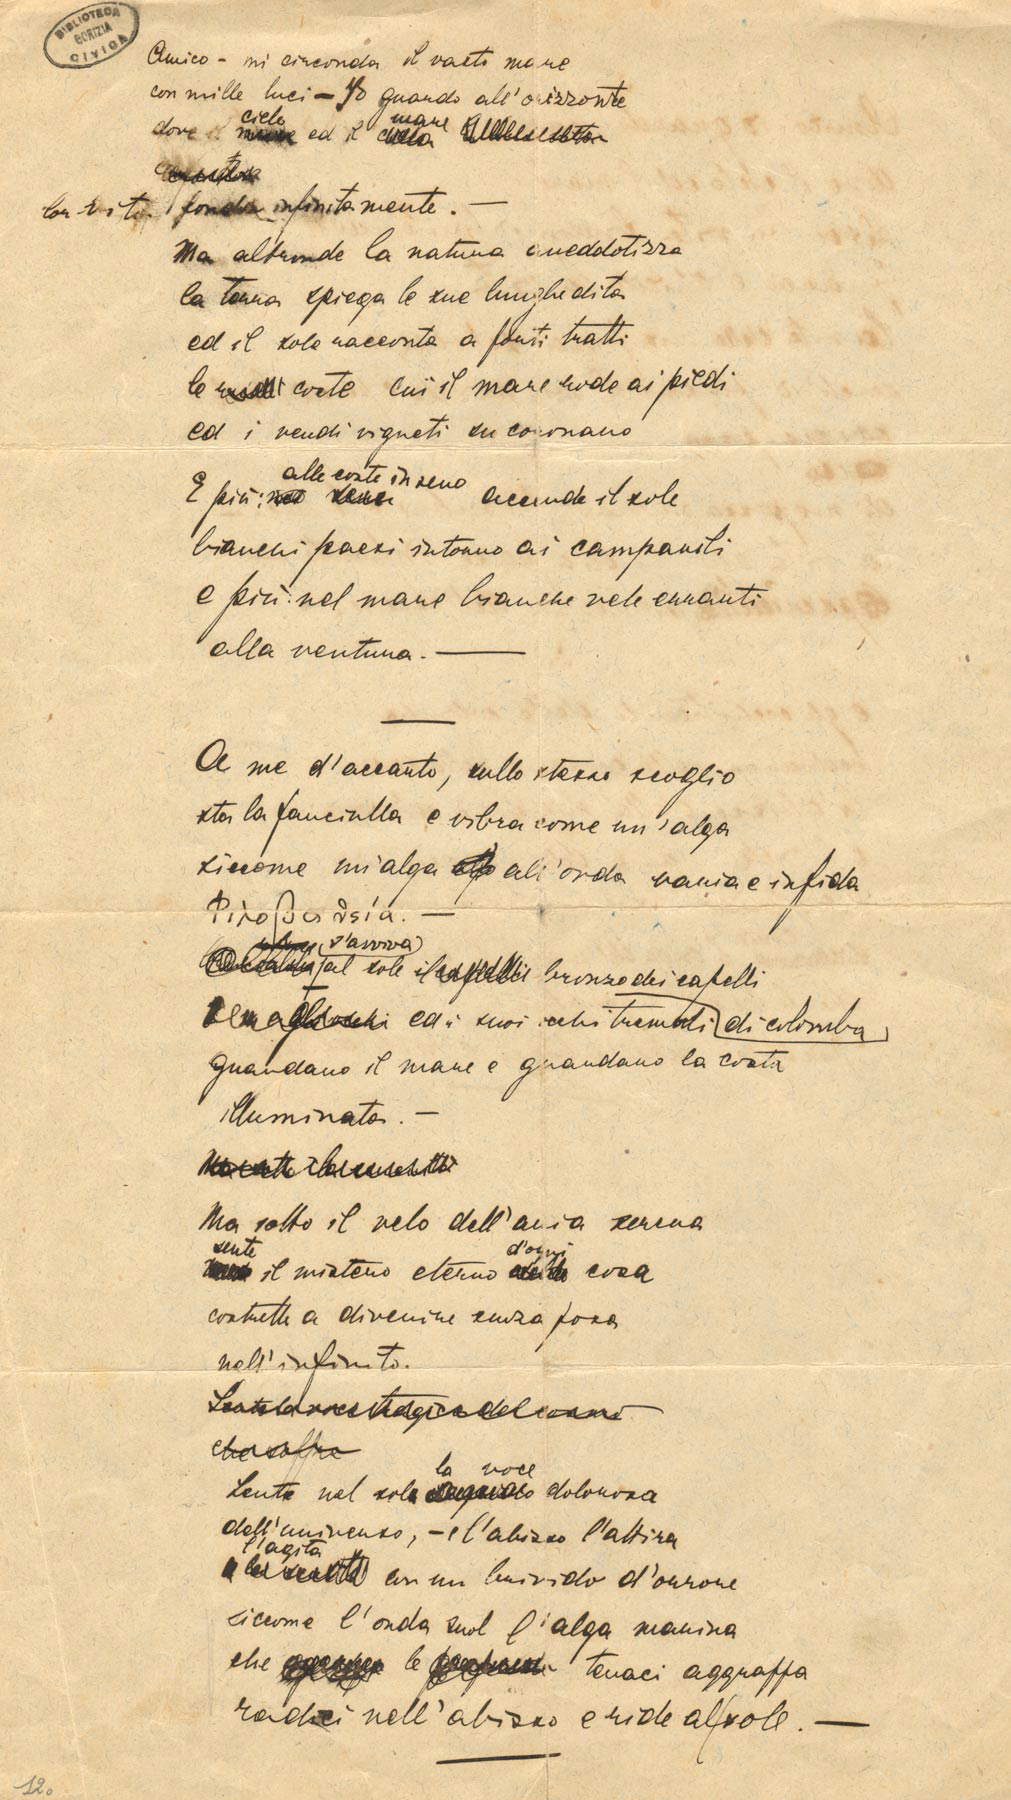 BIBLIOTECA
GORIZIA
CIVICA
Amico – mi circonda il vasto mare
con mille luci – Io guardo all'orizzonte
cielo mare
dove il mare ed il cielo
con vita fondon infinitamente. —
Ma altronde la natura aneddotizza
la terra spiega le sue lunghe dita
ed il sole racconta a forti tratti
le coste cui il mare rode ai piedi
ed i verdi vigneti su coronano
alle coste in seno
E più: accende il sole
bianchi paesi intorno ai campanili
e più: nel mare bianche vele erranti
alla ventura. —
A me d'accanto, sullo stesso scoglio
sta la fanciulla e vibra come un'alga
siccome un'alga all'onda varia e infida
Φιλοβαθεία. —
s'avviva
al sole il bronzo dei capelli
ed i suoi occhi tremuli di colomba
guardano il mare e guardano la costa
illuminata. —
Ma sotto il velo dell'aria serena
sente d'ogni
il mistero eterno cosa
costretta a divenire senza posa
nell'infinito.
Sente la voce tragica del
che soffre
la voce
Sente nel sole dolorosa
dell'universo, – e l'abisso l'attira
l'agita
con un brivido d'orrore
siccome l'onda suol l'alga marina
che le tenaci aggraffa
radici nell'abisso e ride al sole. —
12.